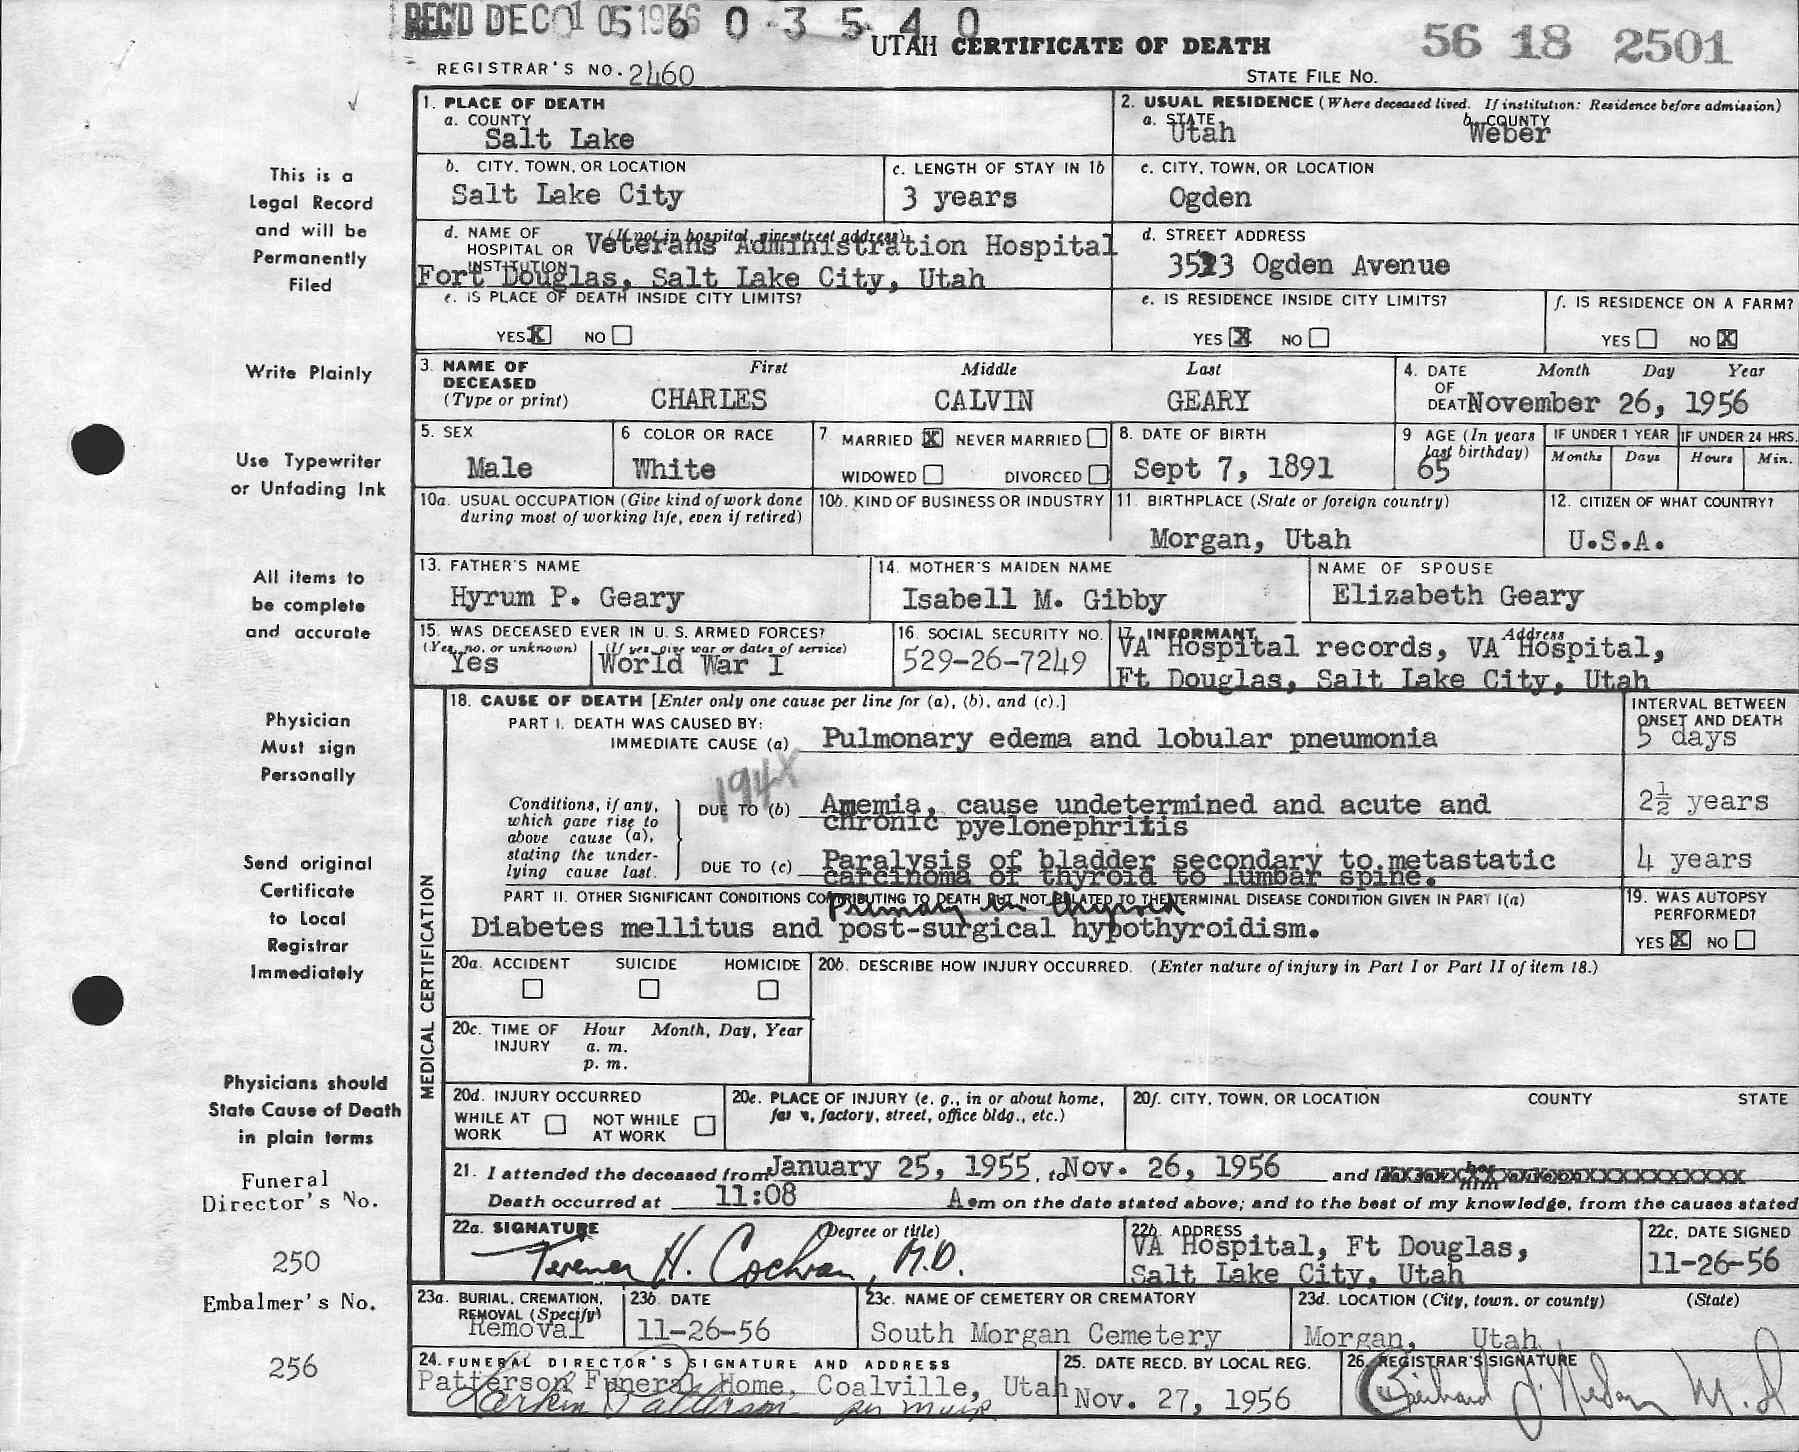 REC'D DEC 0 1956 0 3 5 4 0
UTAH CERTIFICATE OF DEATH
56 18 2501
REGISTRAR'S NO. 2460
STATE FILE No.
This is a
Legal Record
and will be
Permanently
Filed
Write Plainly
Use Typewriter
or Unfading Ink
All items to
be complete
and accurate
Physician
Must sign
Personally
Send original
Certificate
to Local
Registrar
Immediately
Physicians should
State Cause of Death
in plain terms
Funeral
Director's No.
250
Embalmer's No.
256
1. PLACE OF DEATH
a. COUNTY
Salt Lake
2. USUAL RESIDENCE (Where deceased lived. If institution: Residence before admission)
a. STATE
Utah
b. COUNTY
Weber
b. CITY, TOWN, OR LOCATION
Salt Lake City
c. LENGTH OF STAY IN 1b
3 years
c. CITY, TOWN, OR LOCATION
Ogden
d. NAME OF HOSPITAL OR INSTITUTION (If not in hospital, give street address)
Veterans Administration Hospital
Fort Douglas, Salt Lake City, Utah
d. STREET ADDRESS
Ogden Avenue
e. IS PLACE OF DEATH INSIDE CITY LIMITS?
YES X NO
e. IS RESIDENCE INSIDE CITY LIMITS?
YES X NO
f. IS RESIDENCE ON A FARM?
YES NO X
3. NAME OF DECEASED (Type or print)
First Middle Last
CHARLES CALVIN GEARY
4. DATE OF DEATH Month Day Year
November 26, 1956
5. SEX
Male
6 COLOR OR RACE
White
7 MARRIED X NEVER MARRIED
WIDOWED DIVORCED
8. DATE OF BIRTH
Sept 7, 1891
9 AGE (In years last birthday)
65
IF UNDER 1 YEAR
Months Days
IF UNDER 24 HRS.
Hours Min.
10a. USUAL OCCUPATION (Give kind of work done
during most of working life, even if retired)
10b. KIND OF BUSINESS OR INDUSTRY
11. BIRTHPLACE (State or foreign country)
Morgan, Utah
12. CITIZEN OF WHAT COUNTRY?
U.S.A.
13. FATHER'S NAME
Hyrum P. Geary
14. MOTHER'S MAIDEN NAME
Isabell M. Gibby
NAME OF SPOUSE
Elizabeth Geary
15. WAS DECEASED EVER IN U. S. ARMED FORCES?
(Yes, no, or unknown) (If yes, give war or dates of service)
Yes World War I
16. SOCIAL SECURITY NO.
529-26-7249
17. INFORMANT Address
VA Hospital records, VA Hospital,
Ft Douglas, Salt Lake City, Utah
MEDICAL CERTIFICATION
18. CAUSE OF DEATH [Enter only one cause per line for (a), (b), and (c).]
INTERVAL BETWEEN ONSET AND DEATH
PART I. DEATH WAS CAUSED BY:
IMMEDIATE CAUSE (a) Pulmonary edema and lobular pneumonia
5 days
194X
Conditions, if any,
which gave rise to
above cause (a),
stating the under-
lying cause last.
DUE TO (b) Anemia, cause undetermined and acute and
chronic pyelonephritis
2½ years
DUE TO (c) Paralysis of bladder secondary to metastatic
carcinoma of thyroid to lumbar spine.
4 years
PART II. OTHER SIGNIFICANT CONDITIONS CONTRIBUTING TO DEATH BUT NOT RELATED TO THE TERMINAL DISEASE CONDITION GIVEN IN PART I(a)
Primary in thyroid
Diabetes mellitus and post-surgical hypothyroidism.
19. WAS AUTOPSY PERFORMED?
YES X NO
20a. ACCIDENT SUICIDE HOMICIDE
20b. DESCRIBE HOW INJURY OCCURRED. (Enter nature of injury in Part I or Part II of item 18.)
20c. TIME OF INJURY Hour Month, Day, Year
a. m.
p. m.
20d. INJURY OCCURRED
WHILE AT WORK NOT WHILE AT WORK
20e. PLACE OF INJURY (e. g., in or about home,
farm, factory, street, office bldg., etc.)
20f. CITY, TOWN, OR LOCATION COUNTY STATE
21. I attended the deceased from January 25, 1955, to Nov. 26, 1956 and
Death occurred at 11:08 A m on the date stated above; and to the best of my knowledge, from the causes stated
22a. SIGNATURE (Degree or title)
H. Cochran, M.D.
22b. ADDRESS
VA Hospital, Ft Douglas,
Salt Lake City, Utah
22c. DATE SIGNED
11-26-56
23a. BURIAL, CREMATION, REMOVAL (Specify)
Removal
23b. DATE
11-26-56
23c. NAME OF CEMETERY OR CREMATORY
South Morgan Cemetery
23d. LOCATION (City, town, or county) (State)
Morgan, Utah
24. FUNERAL DIRECTOR'S SIGNATURE AND ADDRESS
Patterson Funeral Home, Coalville, Utah
Patterson per muir
25. DATE RECD. BY LOCAL REG.
Nov. 27, 1956
26. REGISTRAR'S SIGNATURE
M.D